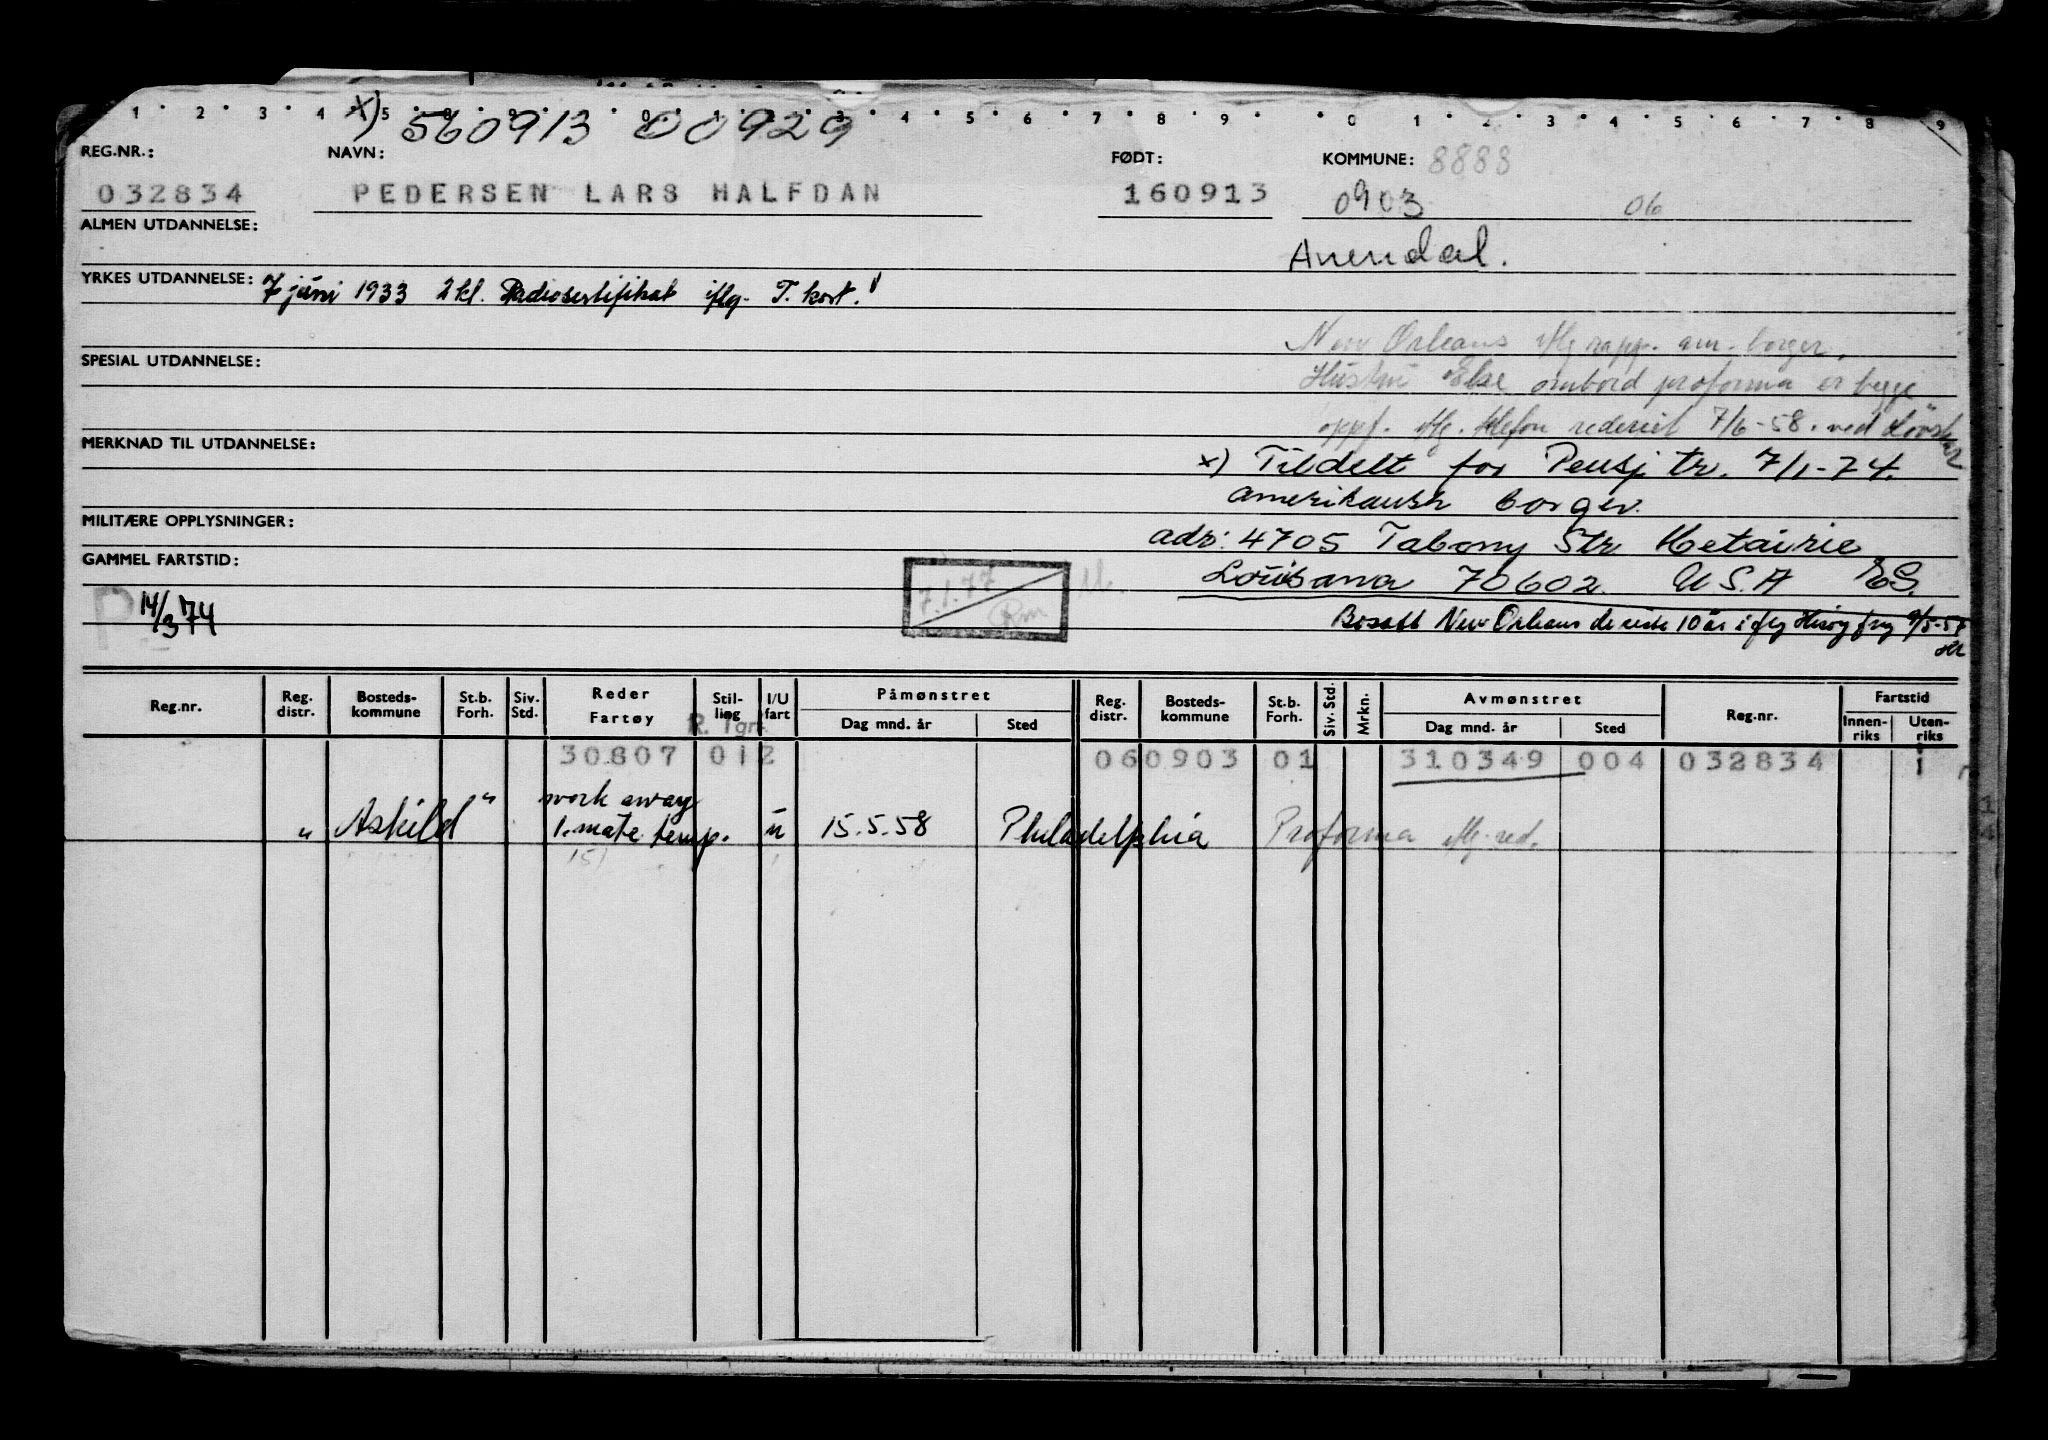 1 2 3 4 5 8 9 0 1 2 3 4 5 6 7 8 9 0 1 2 3 4 5 6 7 8 9
x) 560913 00929
REG.NR.: NAVN: FØDT: KOMMUNE: 8888
032834 PEDERSEN LARS HALFDAN 160913 0903 06
ALMEN UTDANNELSE:
Arendal.
YRKES UTDANNELSE: 7 juni 1933 2 kl. Radiosertifikat iflg. T. kort.
New Orleans iflg rapp. am. borger.
SPESIAL UTDANNELSE:
Hustru Else ombord proforma er begge
oppf. iflg. telefon rederiet 7/6-58. ved
MERKNAD TIL UTDANNELSE:
x) Tildelt for Pensj tr. 7/1-74.
amerikansk borger.
MILITÆRE OPPLYSNINGER:
adr: 4705 Tabony Str Metairie
GAMMEL FARTSTID:
Louisana 70602 U S.A ES.
7.1.77 Rm
P 14/3 74
Bosatt New Orleans de siste 10 år iflg
Reg.nr. Reg. distr. Bosteds- kommune St.b. Forh. Siv. Std. Reder Fartøy Stil- ling I/U fart Påmønstret Dag mnd. år Sted Reg. distr. Bosteds- kommune St.b. Forh. Siv. Std. Mrkn. Avmønstret Dag mnd. år Sted Reg.nr. Fartstid Innen- riks Uten- riks
R. Tgr
30807 012 060903 01 310349 004 032834 1
work away
" Askild" 1. mate temp. u 15.5.58 Philadelphia Proforma iflg. red.